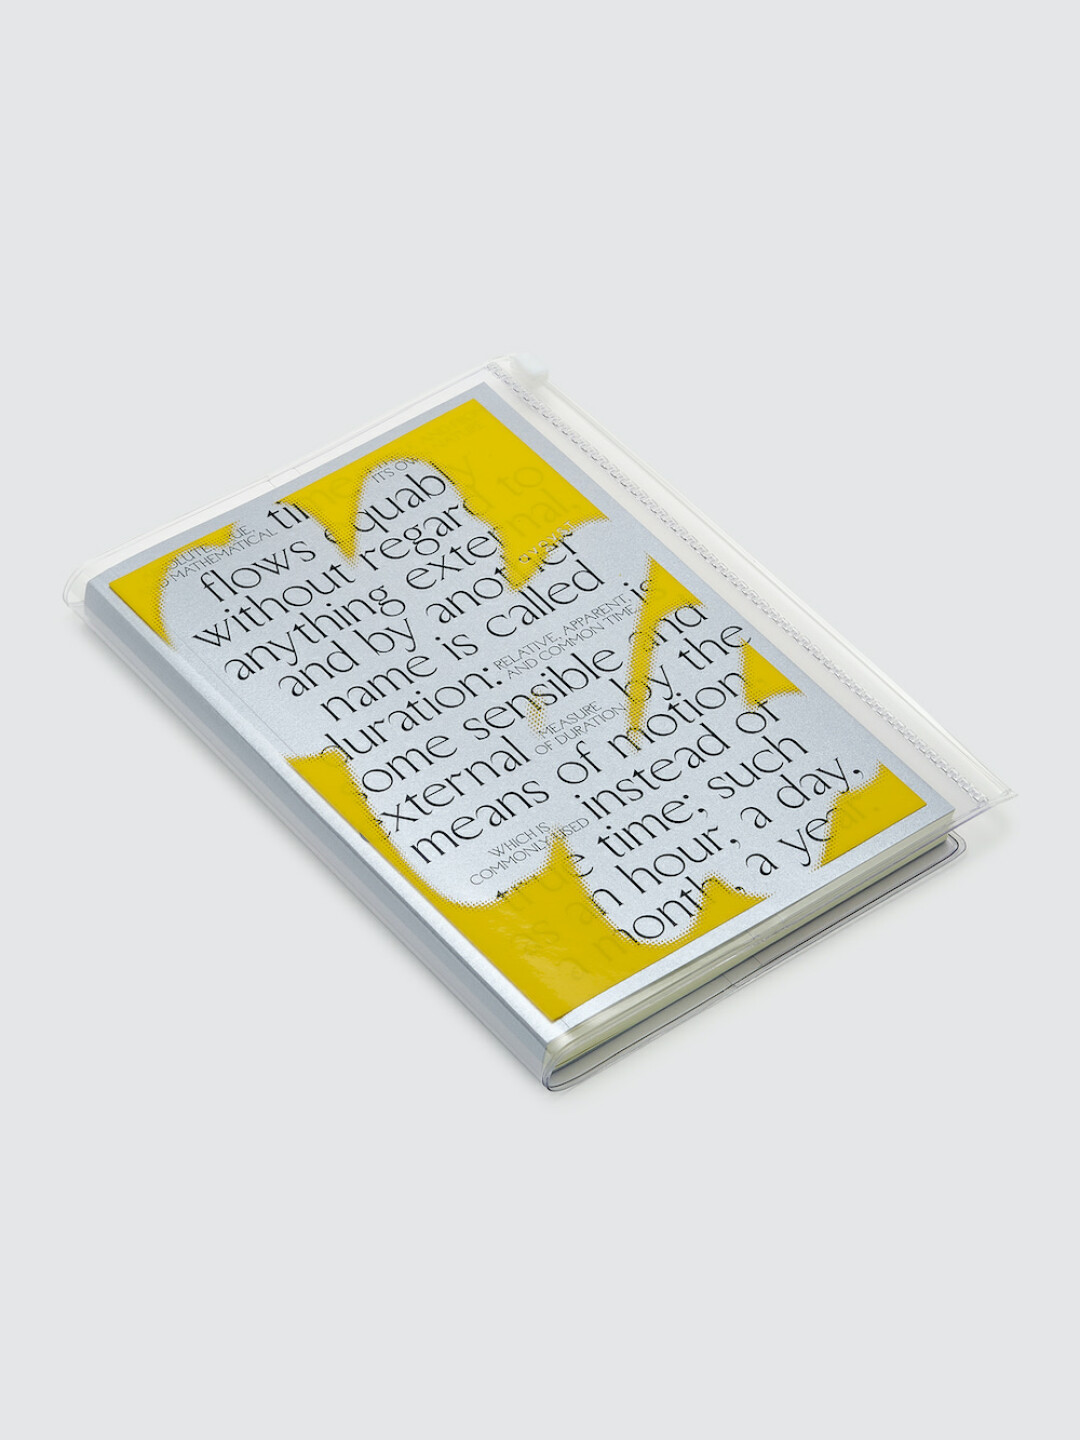 MATHEMATICAL time ITS OW
flows equably
without regard to
anything external,
and by another
name is called
duration: RELATIVE, APPARENT,
AND COMMON TIME, is
some sensible and
external MEASURE
OF DURATION by the
means of motion
WHICH IS
COMMONLY USED instead of
true time; such
as an hour, a day,
a month, a year.